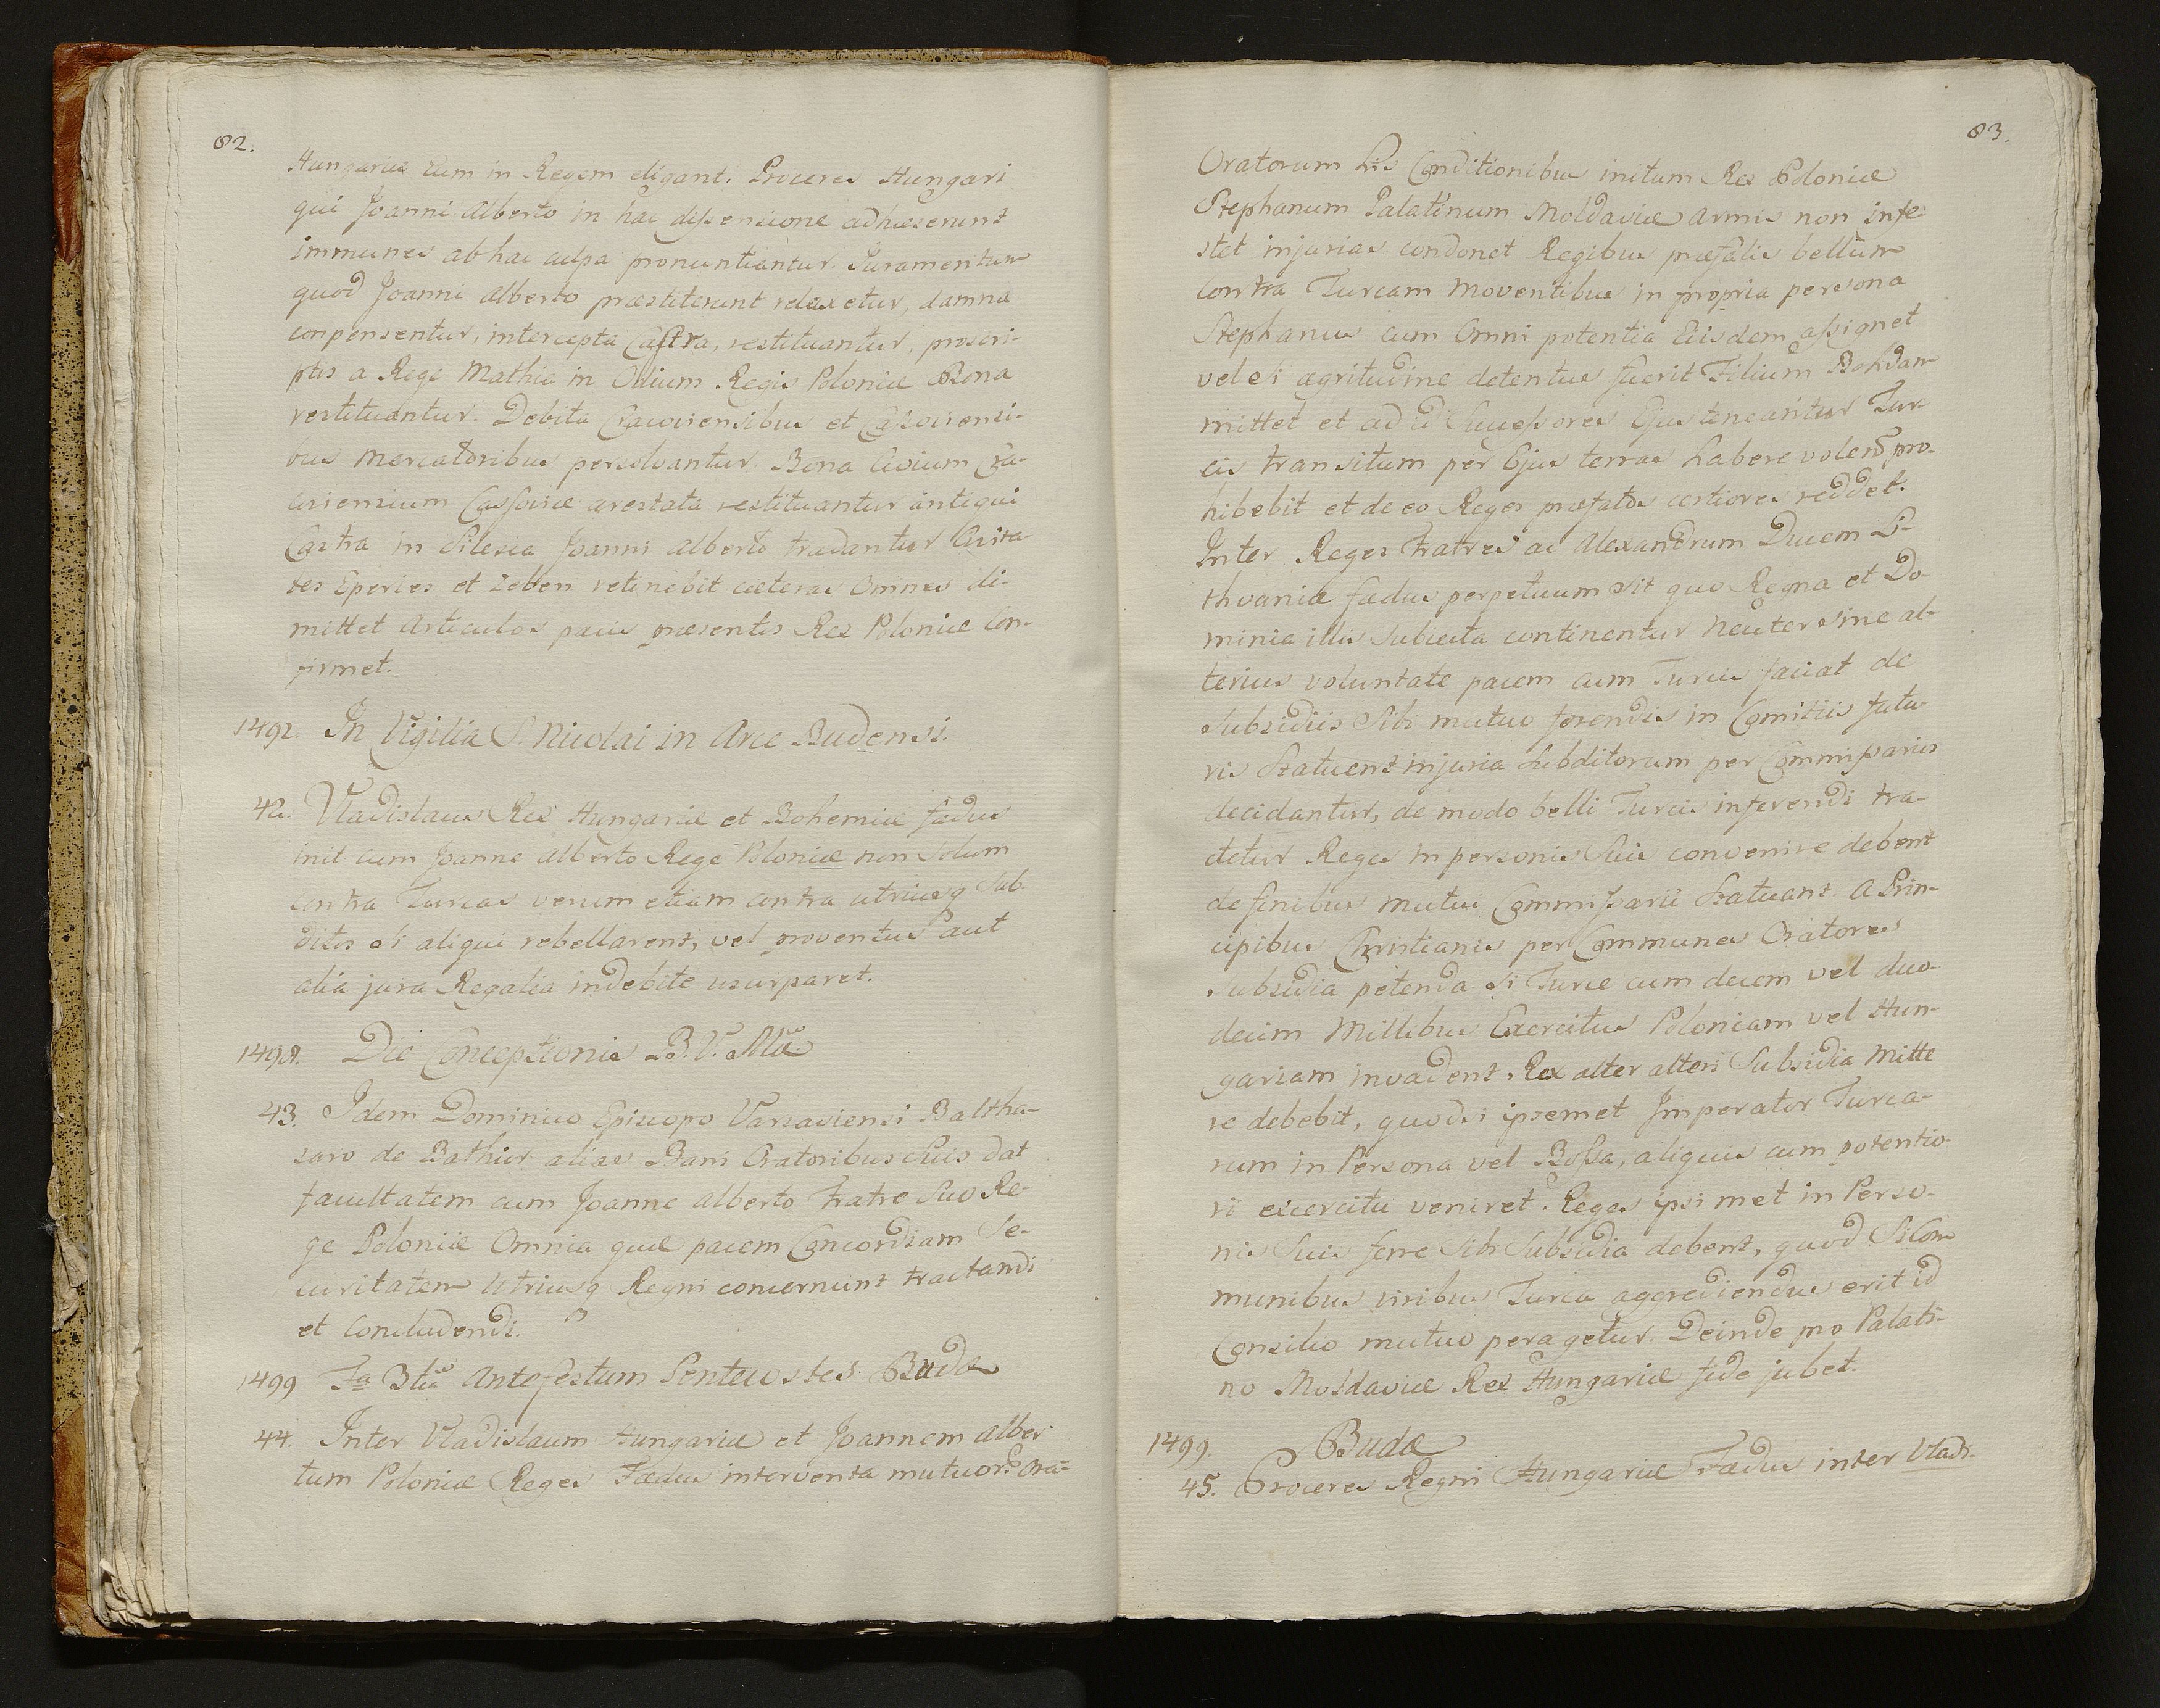 82.
Hungariæ Eum in Regem eligant. Proceres Hungari
qui Joanni Alberto in hac dissensione adhæserunt
immunes ab hac culpa pronuntiantur. Juramentum
quod Joanni Alberto præstiterunt relaxetur, damna
conpensentur, intercepta Castra, restituantur, proscri-
ptis a Rege Mathia in Odium Regis Poloniæ Bona
restituantur. Debita Cracoviensibus et Cassoviensi-
bus Mercatoribus persolvantur. Bona Civium Cra-
coviensium Cassoviæ arestata restituantur antiqui
Castra in Silesia Joanni Alberto tradantur Civita-
tes Eperies et Zeben retinebit cæteras Omnes di-
mittet Articulos pacis præsentis Rex Poloniæ con-
firmet.
1492. In Vigilia S. Nicolai in Arce Budensi.
42. Vladislaus Rex Hungariæ et Bohemiæ fædus
init cum Joanne Alberto Rege Poloniæ non Solum
contra Turcas verum etiam contra utriusq Sub-
ditos si aliqui rebellarent, vel proventus aut
alia jura Regalia indebite usurparet.
1498. Die Conceptionis B. V. Mæ
43. Idem Dominico Episcopo Varsaviensi Baltha-
saro de Bathur alias Bani Oratoribus suis dat
facultatem cum Joanne Alberto Fratre Suo Re-
ge Poloniæ Omnia quæ pacem Concordiam Se-
curitatem Utriusq Regni concernunt tractandi
et concludendi.
1499 Fa 3tia Ante festum Pentecostes Budæ
44. Inter Vladislaum Hungariæ et Joannem Alber
tum Poloniæ Reges Fædus interventa mutuor. Ora-
83.
Oratorum his Conditionibus initum Rex Poloniæ
Stephanum Palatinum Moldaviæ armis non infe-
stet injurias condonet Regibus præfatis bellum
contra Turcam moventibus in propria persona
Stephanus cum Omni potentia Eisdem assignet
vel si ægritudine detentus fuerit Filium Bohdan
mittet et ad id Successores Ejus teneantur Tur-
cis transitum per Ejus terras habere volent pro-
hibebit et de eo Reges præfatos certiores reddet.
Inter Reges Fratres ac Alexandrum Ducem Li-
thvaniæ fædus perpetuum sit quo Regna et Do-
minia illis Subiecta continentur Neuter sine al-
terius voluntate pacem cum Turcis faciat de
Subsidiis Sibi mutuo ferendis in Comitiis futu-
ris Statuent injuria Subditorum per Commissarios
decidantur, de modo belli Turcis inferendi tra-
ctetur Reges in personis Suis convenire debent
de finibus mutui Commissarii Statuant. A Prin-
cipibus Christianis per Communes Oratores
Subsidia petenda Si Turcæ cum decem vel duo-
decim Millibus Exercitus Poloniam vel Hun-
gariam invadent. Rex alter alteri Subsidia Mitte
re debebit, quodsi ipsemet Imperator Turca-
rum in Persona vel Bossa, aliquis cum potentio-
ri exercitu veniret. Reges ipsi met in Perso-
nis Suis ferre Sibi Subsidia debent, quod Si Com
munibus viribus Turca aggrediendus erit id
Consilio mutuo peragetur. Deinde pro Palati-
no Moldaviæ Rex Hungariæ fide jubet.
1499. Budæ
45. Proceres Regni Hungariæ Fædus inter Vladi-